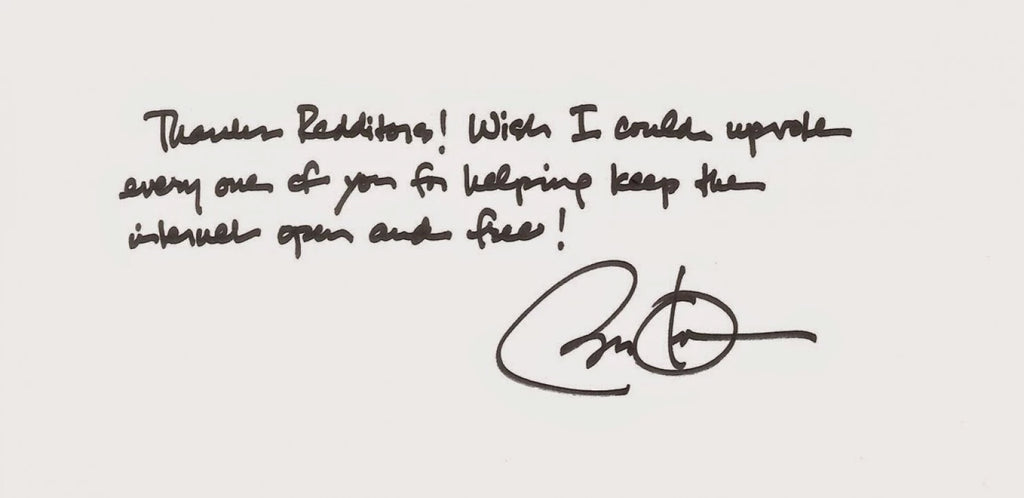 Thanks Redditors! Wish I could upvote
every one of you for helping keep the
internet open and free!